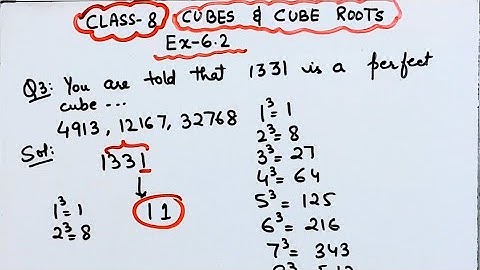 CLASS-8 CUBES & CUBE ROOTS
Ex-6.2
Q3: You are told that 1331 is a perfect
cube ---
4913, 12167, 32768
Sol:
1331
11
1³=1
2³=8
1³=1
2³=8
3³=27
4³=64
5³=125
6³=216
7³=343